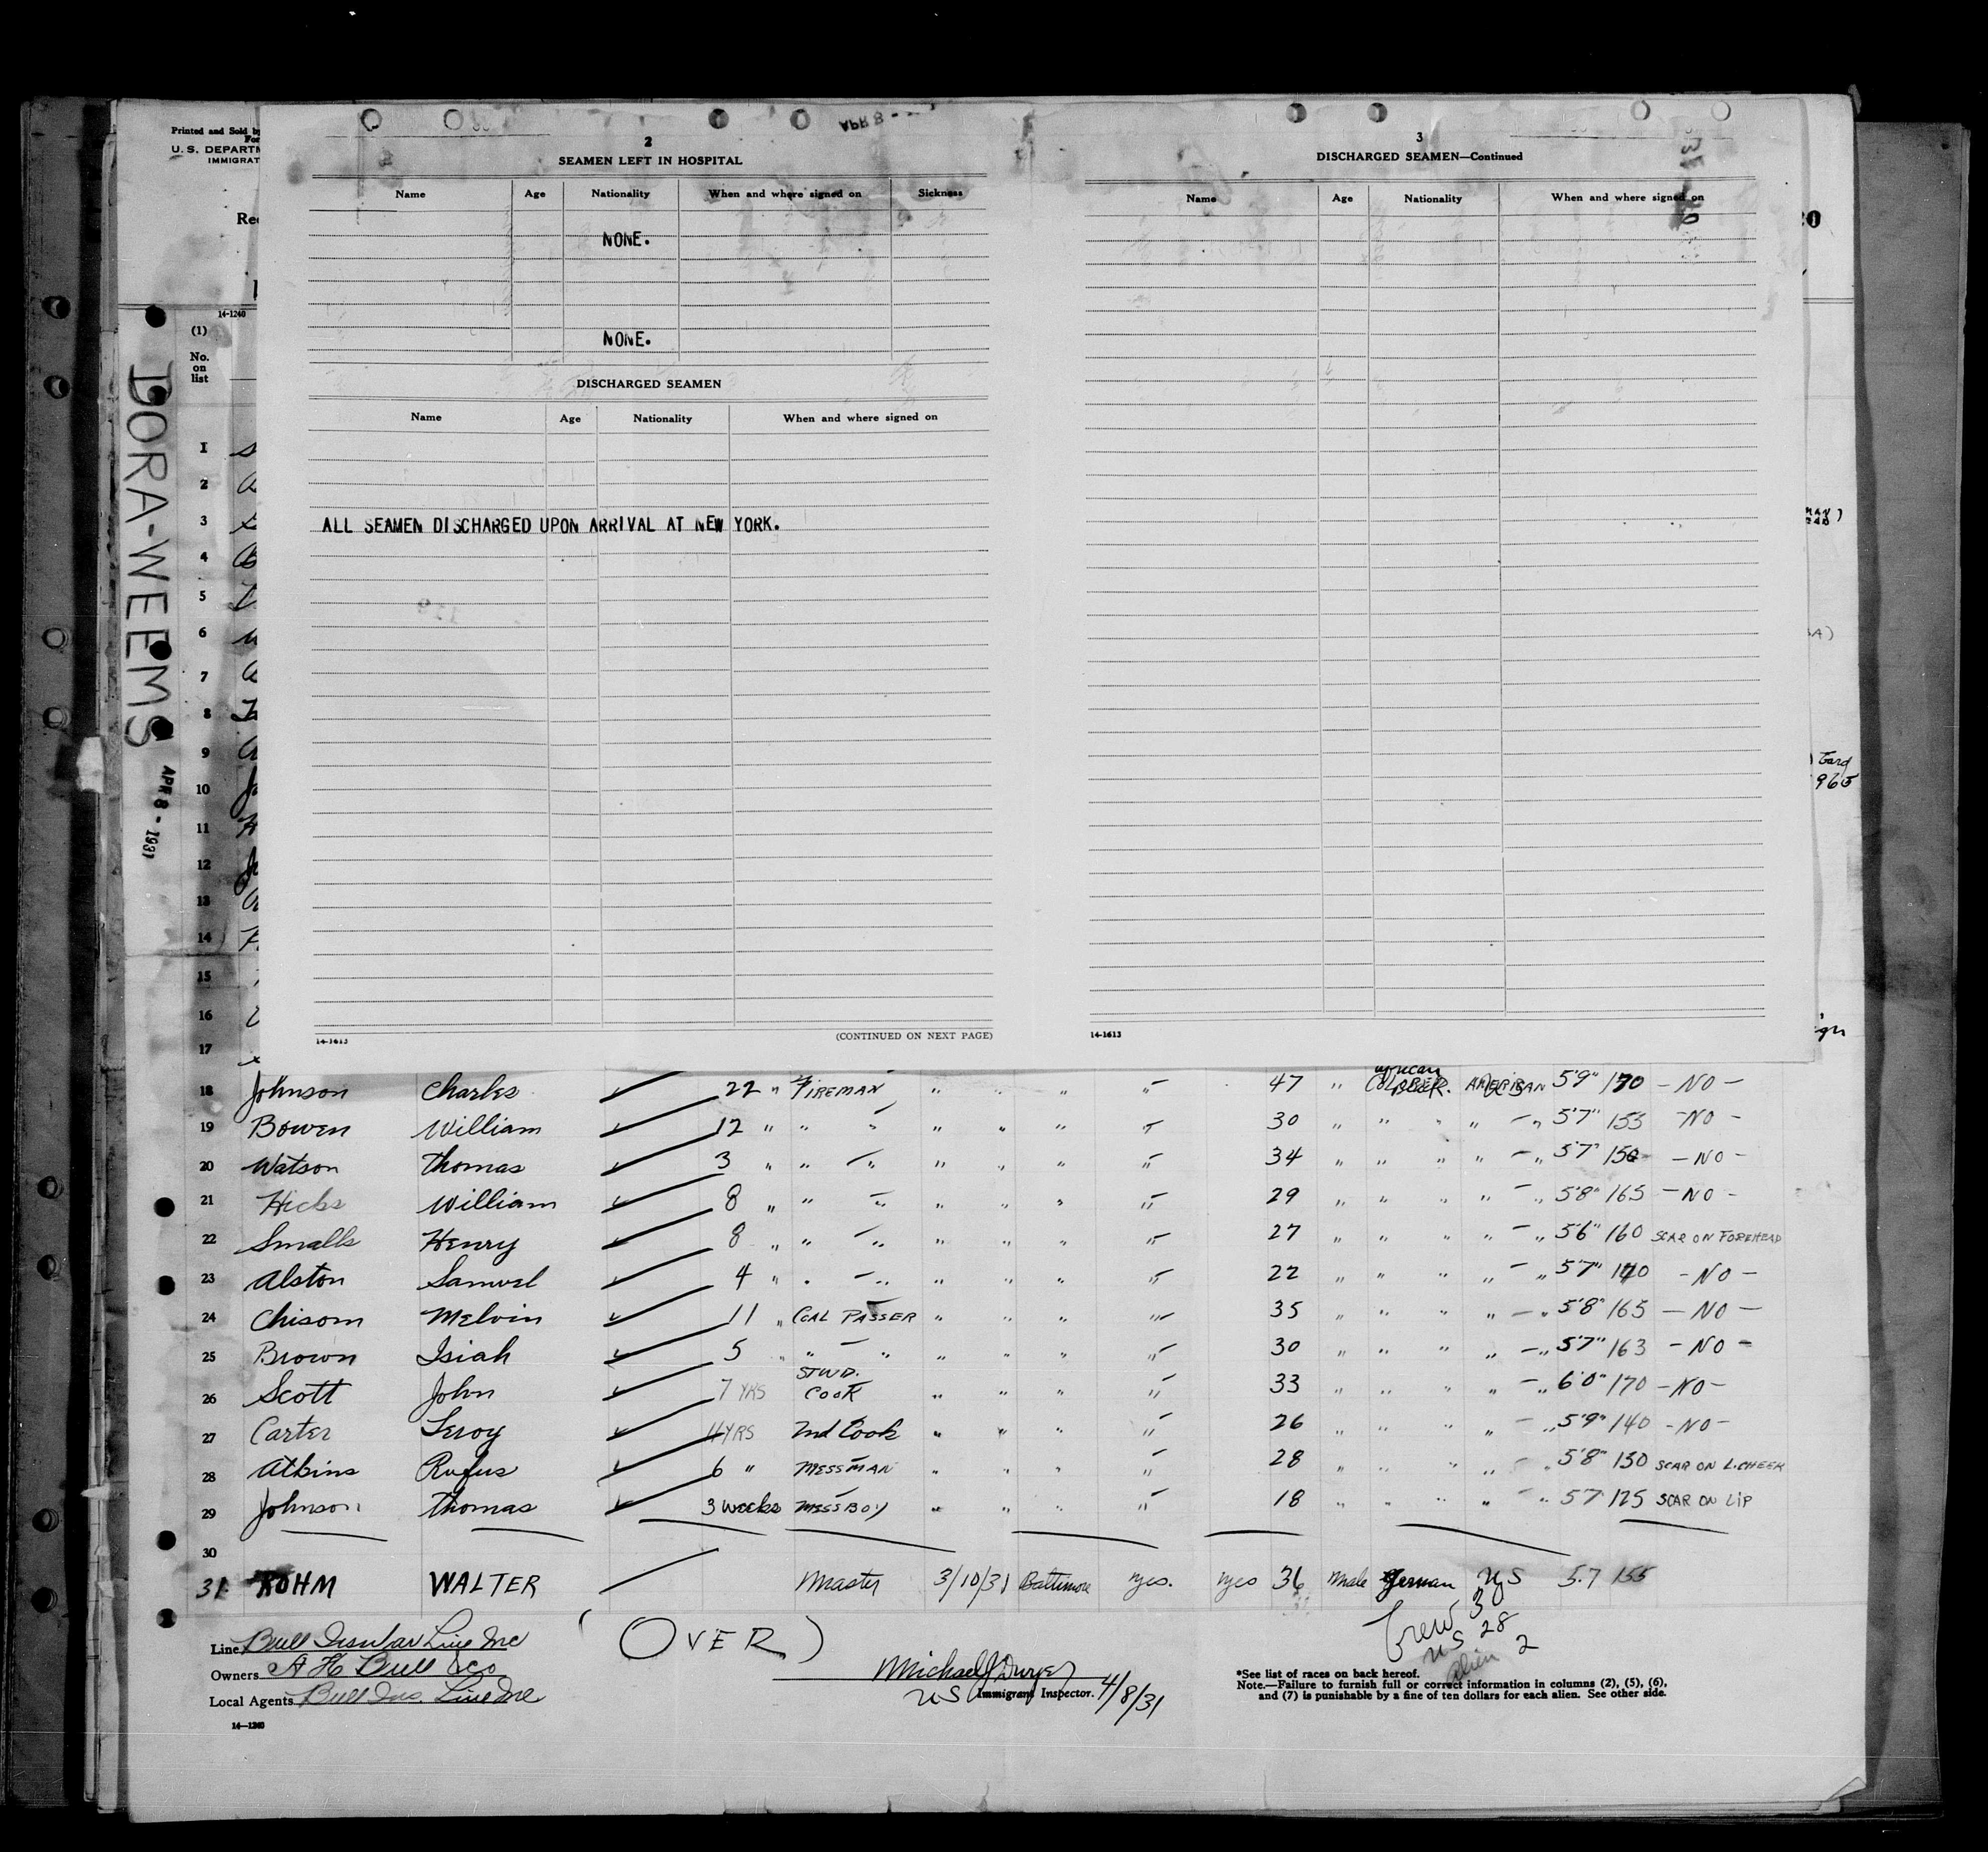 Printed and Sold by
U. S. DEPARTM
IMMIGRAT
14-1240
(1)
No.
on
list
DORA-WEEMS
APR 8 - 1931
2
SEAMEN LEFT IN HOSPITAL
Name Age Nationality When and where signed on Sickness
NONE.
NONE.
DISCHARGED SEAMEN
Name Age Nationality When and where signed on
ALL SEAMEN DISCHARGED UPON ARRIVAL AT NEW YORK.
14-1613 (CONTINUED ON NEXT PAGE)
3
DISCHARGED SEAMEN—Continued
Name Age Nationality When and where signed on
14-1613
1
2
3
4
5
6
7
8
9
10
11
12
13
14
15
16
17
18 Johnson Charles 22 " FIREMAN " " " " 47 " African AMERICAN 5'9" 170 - NO -
19 Bowen William 12 " " " " " " " 30 " " " " " 5'7" 153 - NO -
20 Watson Thomas 3 " " " " " " " 34 " " " " " 5'7" 150 - NO -
21 Hicks William 8 " " " " " " " 29 " " " " " 5'8" 165 - NO -
22 Smalls Henry 8 " " " " " " " 27 " " " " " 5'6" 160 SCAR ON FOREHEAD
23 Alston Samuel 4 " " " " " " " 22 " " " " " 5'7" 140 - NO -
24 Chisom Melvin 11 " COAL PASSER " " " " 35 " " " " " 5'8" 165 - NO -
25 Brown Isiah 5 " " " " " " " 30 " " " " " 5'7" 163 - NO -
26 Scott John 7 YRS STWD. COOK " " " " 33 " " " " " 6'0" 170 - NO -
27 Carter Leroy 4 YRS 2nd Cook " " " " 26 " " " " " 5'9" 140 - NO -
28 Atkins Rufus 6 " MESSMAN " " " " 28 " " " " " 5'8" 130 SCAR ON L. CHEEK
29 Johnson Thomas 3 weeks MESSBOY " " " " 18 " " " " " 5'7 125 SCAR ON LIP
30
31 ROHM WALTER Master 3/10/31 Baltimore yes. yes 36 Male German US 5.7 155
Crew 30
US 28
Alien 2
Line Bull Insular Line Inc
Owners A H Bull & Co
Local Agents Bull Ins. Line Inc
14—1240
(OVER)
Michael J Dwyer
US Immigrant Inspector. 4/8/31
*See list of races on back hereof.
Note.—Failure to furnish full or correct information in columns (2), (5), (6),
and (7) is punishable by a fine of ten dollars for each alien. See other side.